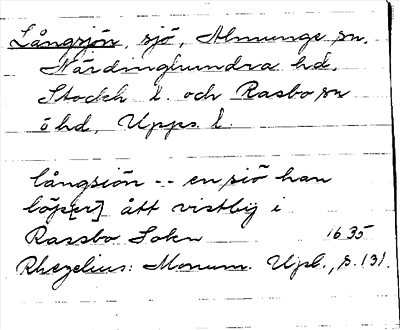 Långsjön, sjö, Almunge sn.
Närdinghundra hd.
Stockh l. och Rasbo sn
ö hd, Upps. l.
långsiön -- en siö han
löp[er] ått vistlig i
Rassbo Sokn 1635
Rhezelius: Monum. Upl., s. 131.